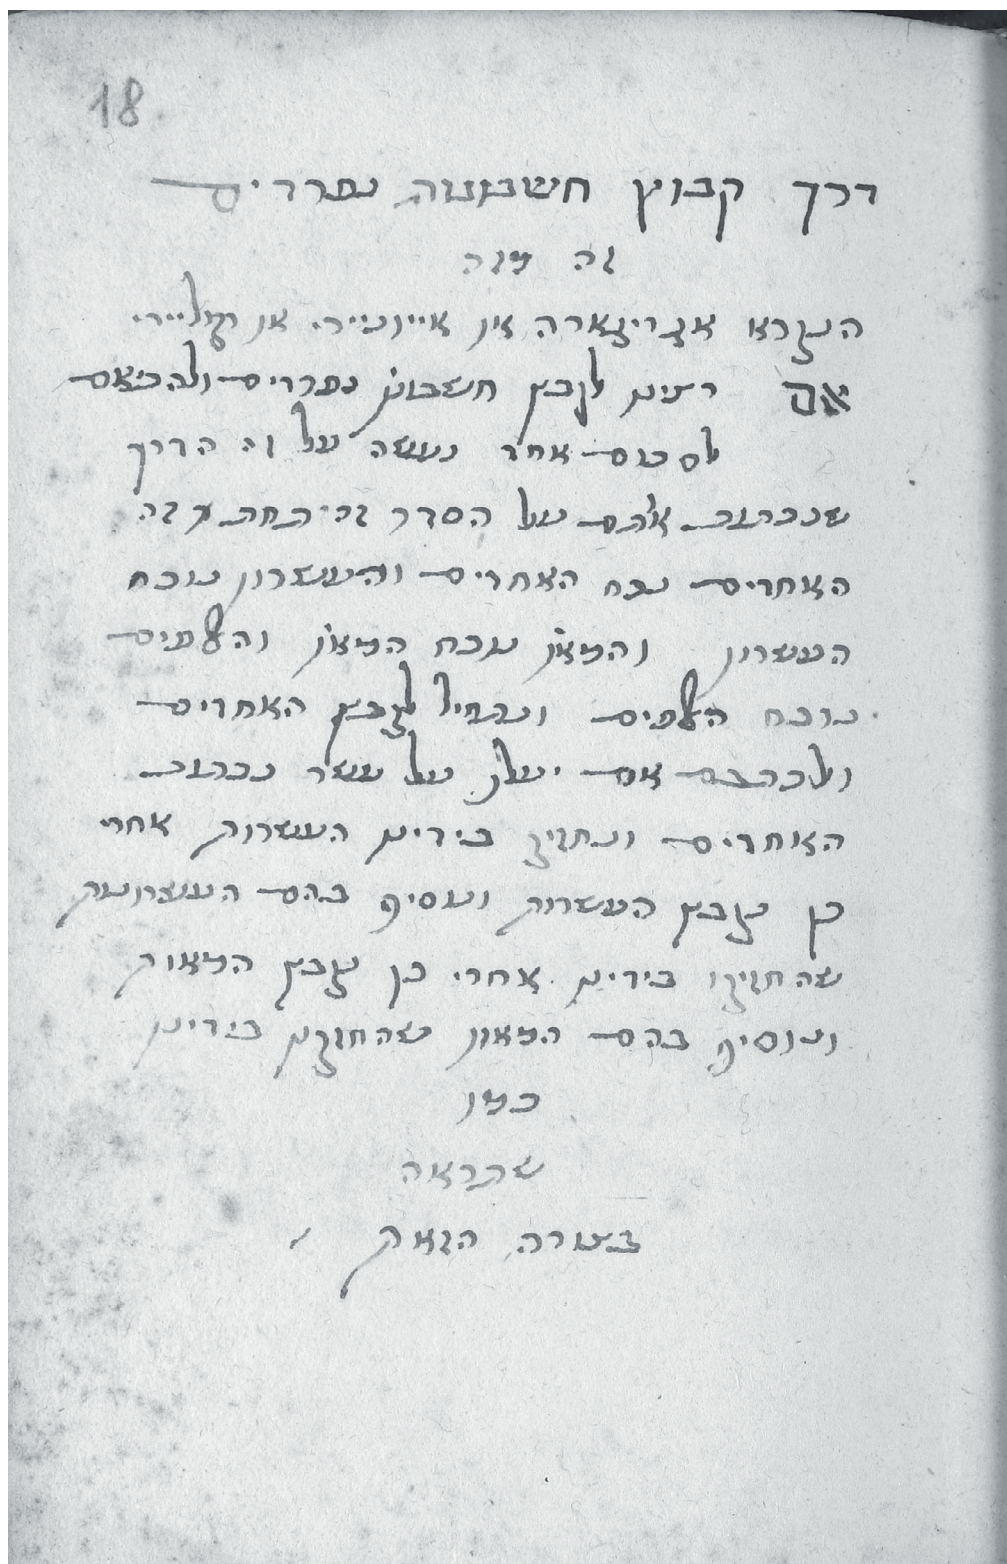 18
דרך קבוץ חשבונות נפרדים
זה מזה
הנקרא או או
אם רצינו לקבץ חשבונו׳ נפרדים ולהביאם
לסכום אחד נעשה על זה הדרך
שנכתוב אותם על הסדר זה תחת זה
האחדים נכח האחדים והעשרות נוכח
העשרות והמאו׳ נוכח המאו׳ והאלפים
נוכח האלפים ונתחיל לקבץ האחדים
ולכתבם אם יעלו על עשר נכתוב
האחדים ונחזיק בידינו העשרות אחרי
כן נקבץ העשרות ונוסיף בהם העשרונות
שהחזיקו בידינו אחרי כן נקבץ המאות
ונוסיף בהם המאות שהחזקנו בידינו
כמו
שתראה
בצורה הזאת